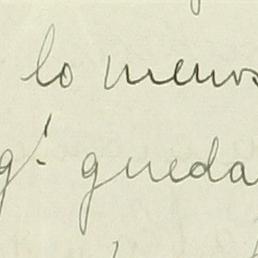 lo menos
q! queda